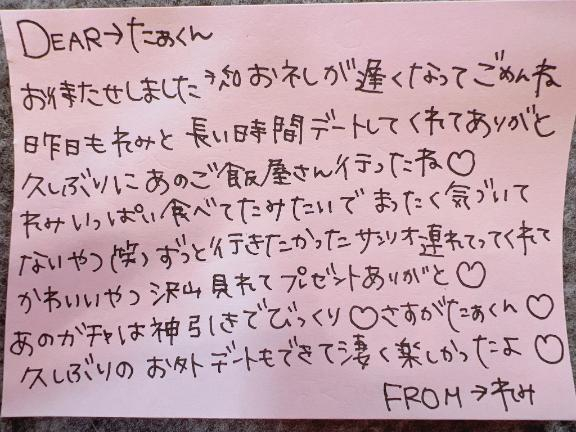 DEAR→たぁくん
お待たせしました お礼が遅くなってごめんね
昨日もれみと長い時間デートしてくれてありがと
久しぶりにあのご飯屋さん行ったね♡
れみいっぱい食べてたみたいでまったく気づいて
ないやつ(笑)ずっと行きたかったサンリオ連れてってくれて
かわいいやつ沢山見れてプレゼントありがと♡
あのガチャは神引きでびっくり♡さすがたぁくん♡
久しぶりのお外デートもできて凄く楽しかったよ♡
FROM→れみ